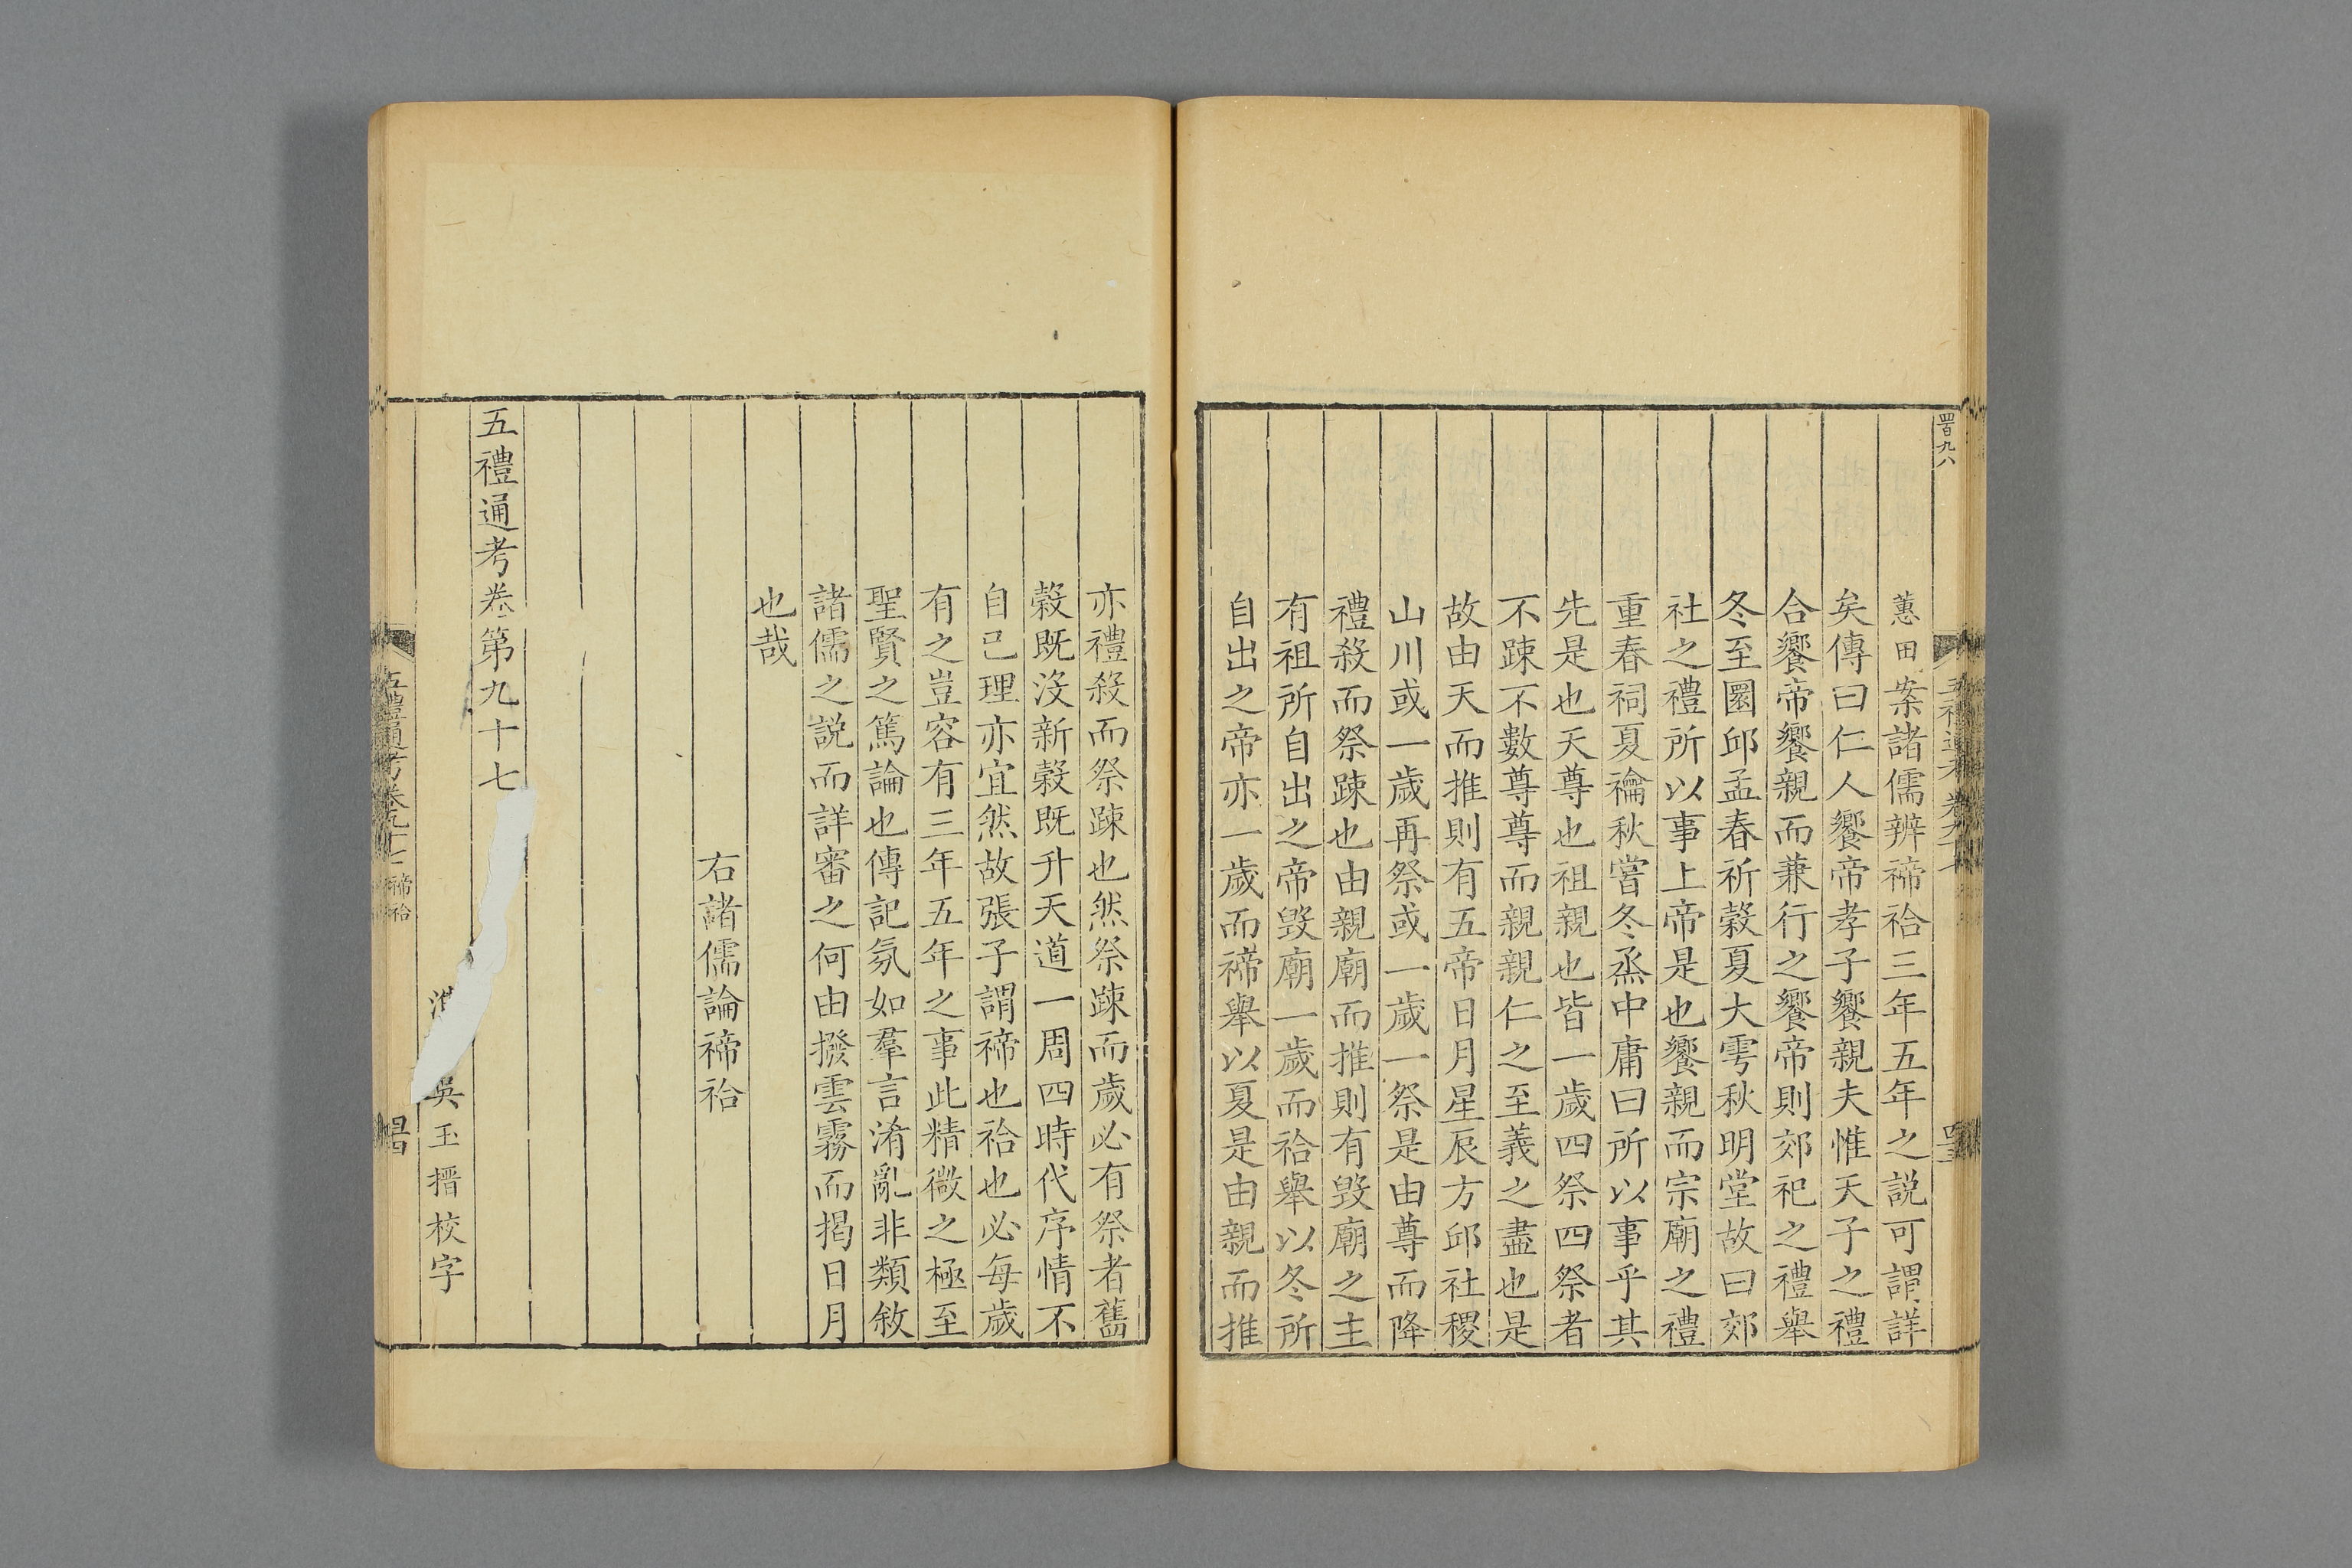 蕙田案諸儒辨禘祫三年五年之説可謂詳
矣傳曰仁人饗帝孝子饗親夫惟天子之禮
合饗帝饗親而兼行之饗帝則郊祀之禮舉
冬至圜邱孟春祈穀夏大雩秋明堂故曰郊
社之禮所以事上帝是也饗親而宗廟之禮
重春祠夏禴秋嘗冬烝中庸曰所以事乎其
先是也天尊也祖親也皆一歲四祭四祭者
不踈不數尊尊而親親仁之至義之盡也是
故由天而推則有五帝日月星辰方邱社稷
山川或一歲再祭或一歲一祭是由尊而降
禮殺而祭踈也由親廟而推則有毁廟之主
有祖所自出之帝毁廟一歲而祫舉以冬所
自出之帝亦一歲而禘舉以夏是由親而推
亦禮殺而祭踈也然祭踈而歲必有祭者舊
穀既没新穀既升天道一周四時代序情不
自已理亦宜然故張子謂禘也祫也必每歲
有之豈容有三年五年之事此精微之極至
聖賢之篤論也傳記氛如羣言淆亂非類敘
諸儒之説而詳審之何由撥雲霧而揭日月
也哉
右諸儒論禘祫
五禮通考卷第九十七
吳玉搢校字
五禮通考卷九十七 禘祫